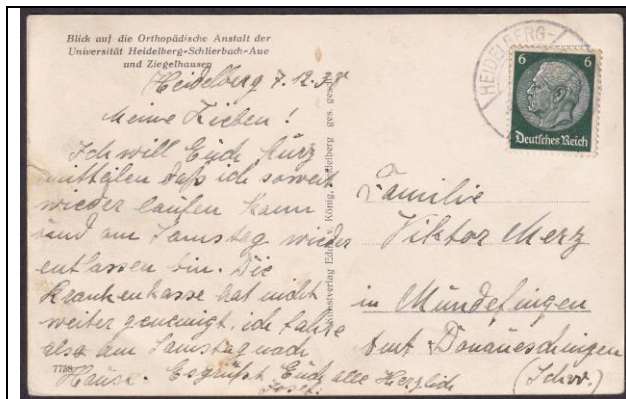 Blick auf die Orthopädische Anstalt der
Universität Heidelberg-Schlierbach-Aue
und Ziegelhausen
Heidelberg 7.12.38
Meine Lieben!
Ich will Euch kurz
mitteilen daß ich soweit
wieder laufen kann
und am Samstag wieder
entlassen bin. Die
Krankenkasse hat nicht
weiter genemigt, ich fahre
also am Samstag nach
Hause. Es grüßt Euch alle Herzlich
Josef.
7758
Kunstverlag Edm. v. König, Heidelberg ges. gesch.
HEIDELBERG-
6 6
Deutsches Reich
Familie
Viktor Merz
in Mundelfingen
Amt Donaueschingen
(Schw.)